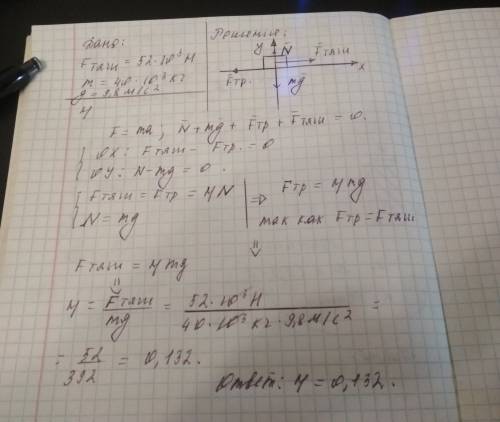 Дано:
Fтяш = 52·10³ Н
m = 40·10³ кг
g = 9,8 м/с²
μ
Решение:
y N Fтяш
Fтр. mg x
F = ma; N + mg + Fтр + Fтяш = 0.
OX: Fтяш - Fтр. = 0
OY: N - mg = 0.
Fтяш = Fтр = μN
N = mg
=> Fтр = μmg
так как Fтр = Fтяш
Fтяш = μmg
μ = Fтяш / mg = 52·10³ Н / 40·10³ кг · 9,8 м/с² =
= 52 / 392 = 0,132.
Ответ: μ = 0,132.